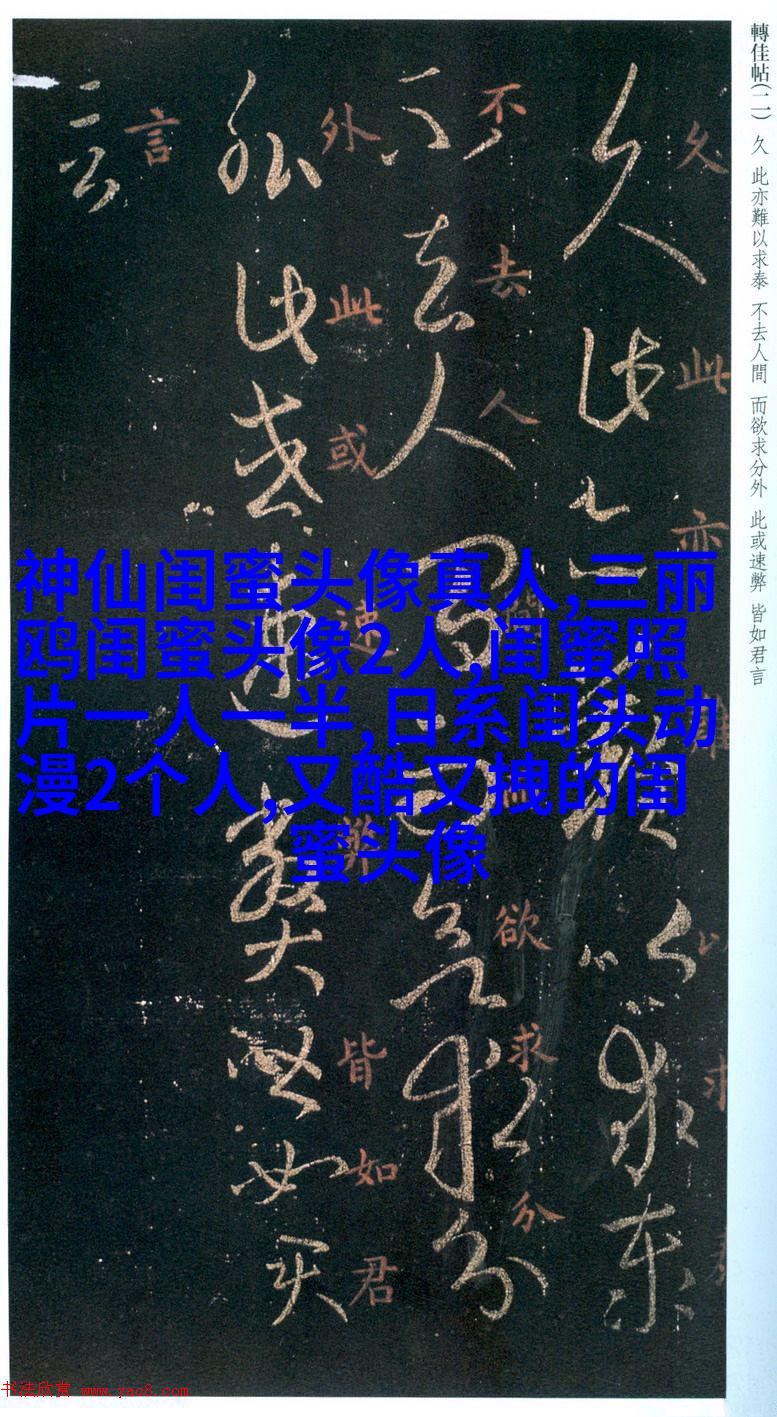 轉佳帖(二) 久 此亦難以求泰 不去人間 而欲求分外 此或速弊 皆如君言
久此亦難以求泰
久此亦難以求
不去人間而欲求分
不去人間而欲求分
外此或速弊皆如君
外此或速弊皆如君
言
言
神仙闺蜜头像真人,三丽
鸥闺蜜头像2人,闺蜜照
片一人一半,日系闺头动
漫2个人,又酷又拽的闺
蜜头像
书法欣赏 www.yac8.com